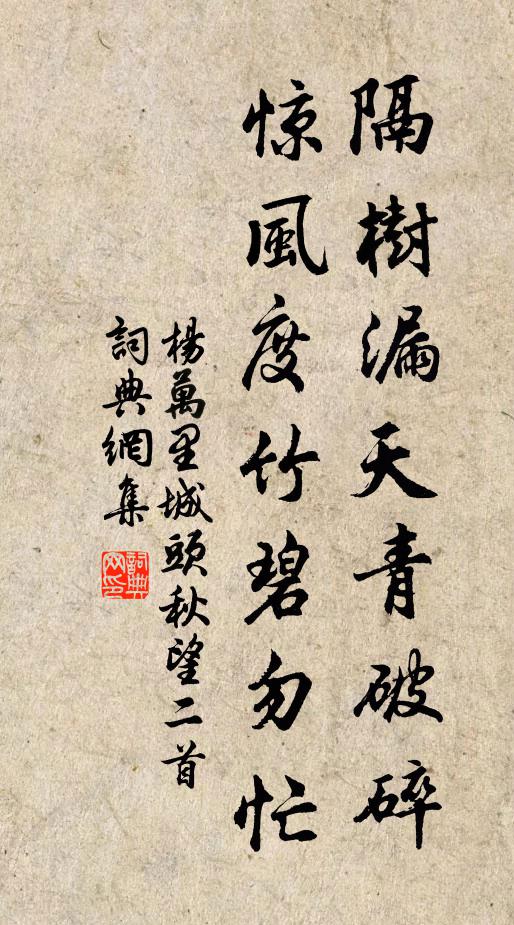 隔樹漏天青破碎
惊風度竹碧勿忙
楊萬里城頭秋望二首
詞典網集
詞典网印